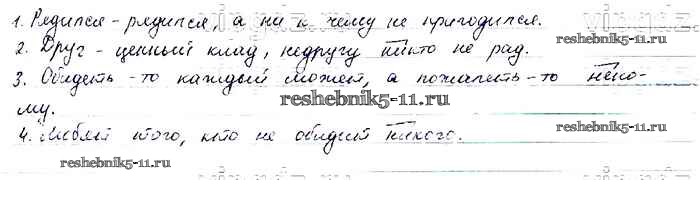 1. Рядился - рядился, а ни к чему не пригодился.
2. Друг - ценный клад, недругу никто не рад.
3. Обидеть-то каждый может, а пожалеть-то неко-
reshebnik5-11.ru
му.
4. Любят того, кто не обидит никого.
reshebnik5-11.ru
reshebnik5-11.ru